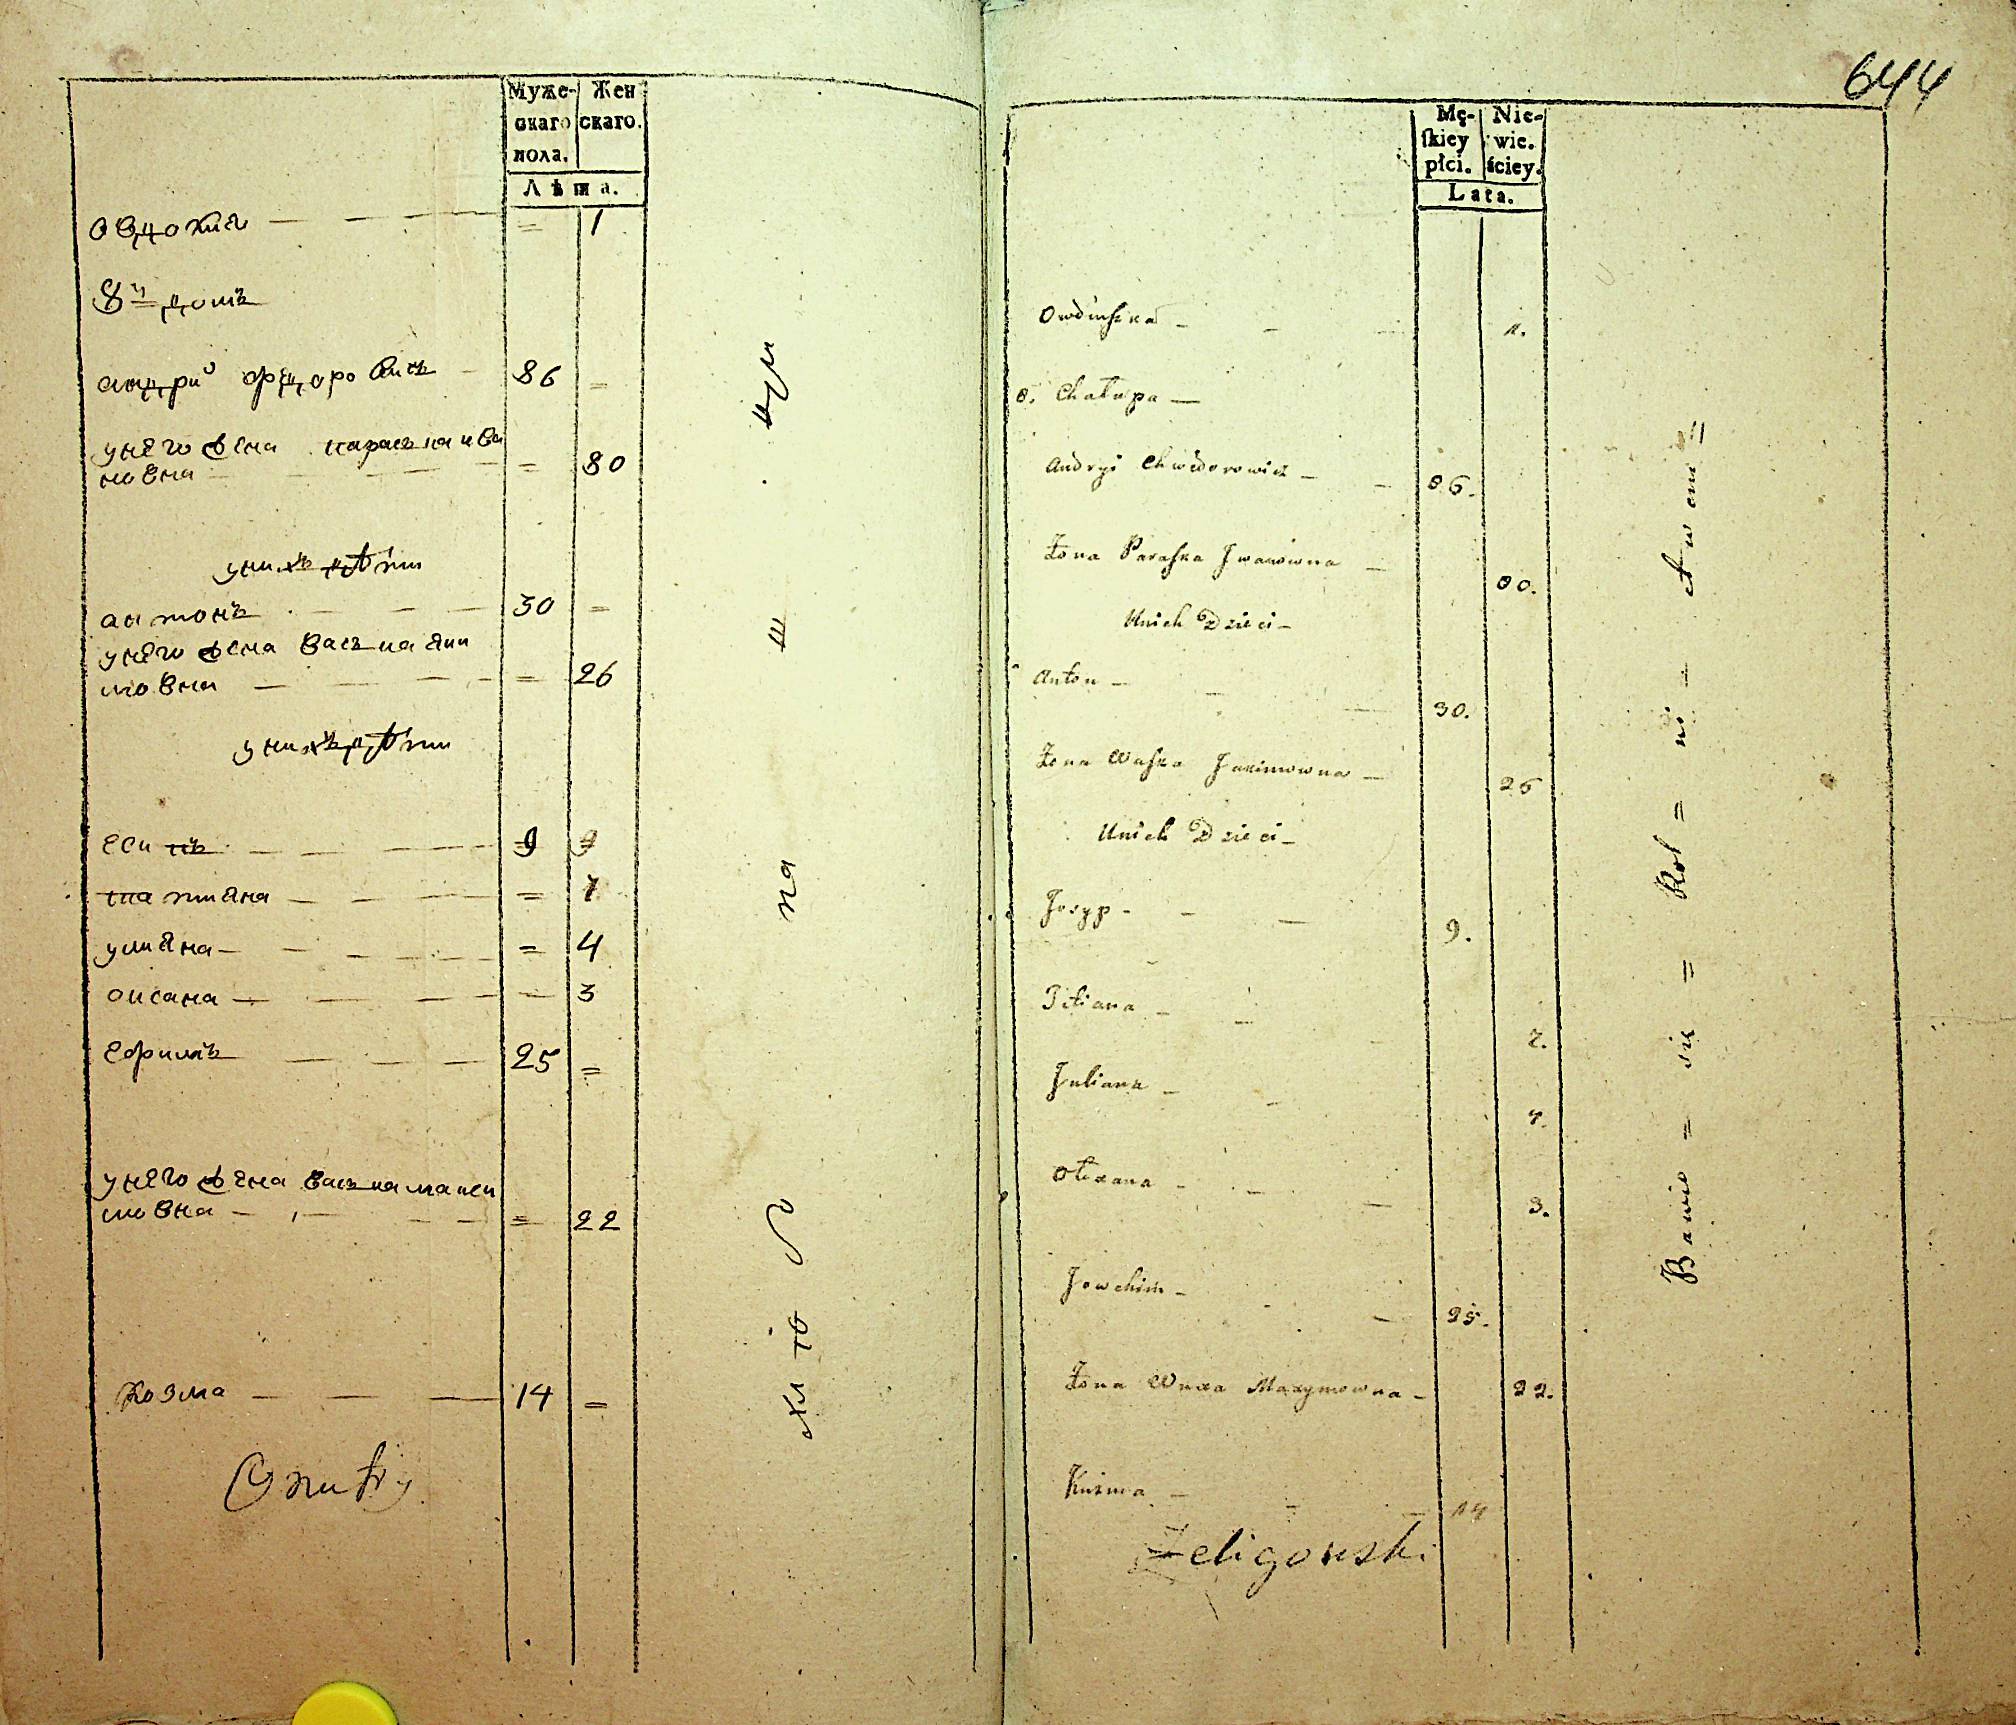 Муже-
скаго
пола.
Жен
скаго.
Лѣта.
овдокия — — — = 1
8й домъ
андрий федоровичъ — 86 =
у него жена параська ива
новна — — — = 80
у нихъ дѣти
антонъ — — — 30 =
у него жена васька яки
мовна — — — = 26
у нихъ дѣти
есипъ — — — 9
татияна — — — = 7
улияна — — — = 4
оксана — — — — 3
ефимъ — — — 25 =
у него жена васька макси
мовна — — — = 22
козма — — — 14 =
644
Mę-
skiey
płci.
Nie-
wie-
ściey.
Lata.
Owduszka — — 1.
8. Chałupa —
Andryi Chwedorowicz — — 86.
Żona Paraska Jwanowna — 80.
Unich Dzieci —
Anton — — — 30.
Żona Waska Jakimowna — 26
Unich Dzieci —
Josyp — — — 9.
Titiana — — 7.
Juliana — — 4.
Olexana — — — 3.
Jowchim — — — 25.
Żona Waska Maxymowna — 22.
Kuzma — — — 14
Żeligowski